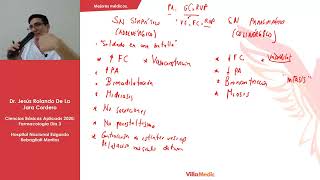 Mejores médicos.
PA: GC x RVP
VS, FC, RVP
SN SIMPÁTICO
(ADRENÉRGICO)
"Soldado en una batalla"
↑ FC → Vasoconstricción
↑ PA
Broncodilatación
Midriasis
No secreciones
No peristaltismo
Contracción de esfínter vesical
Relajación músculo detrusor
SN PARASIMPÁTICO
(COLINÉRGICO)
↓ FC
↓ PA
Broncoconstricción
Miosis
Dr. Jesús Rolando De La
Jara Cordero
Ciencias Básicas Aplicada 2020:
Farmacología Día 3
Hospital Nacional Edgardo
Rebagliati Martins
VillaMedic